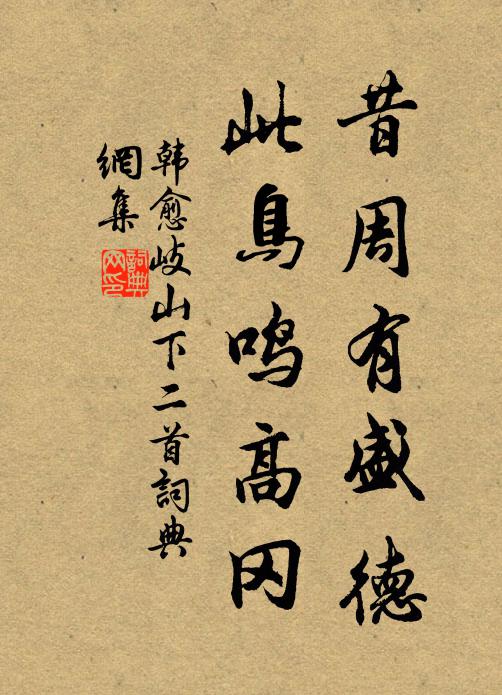 昔周有盛德
此鳥鸣高冈
韩愈岐山下二首詞典
網集
詞典网印